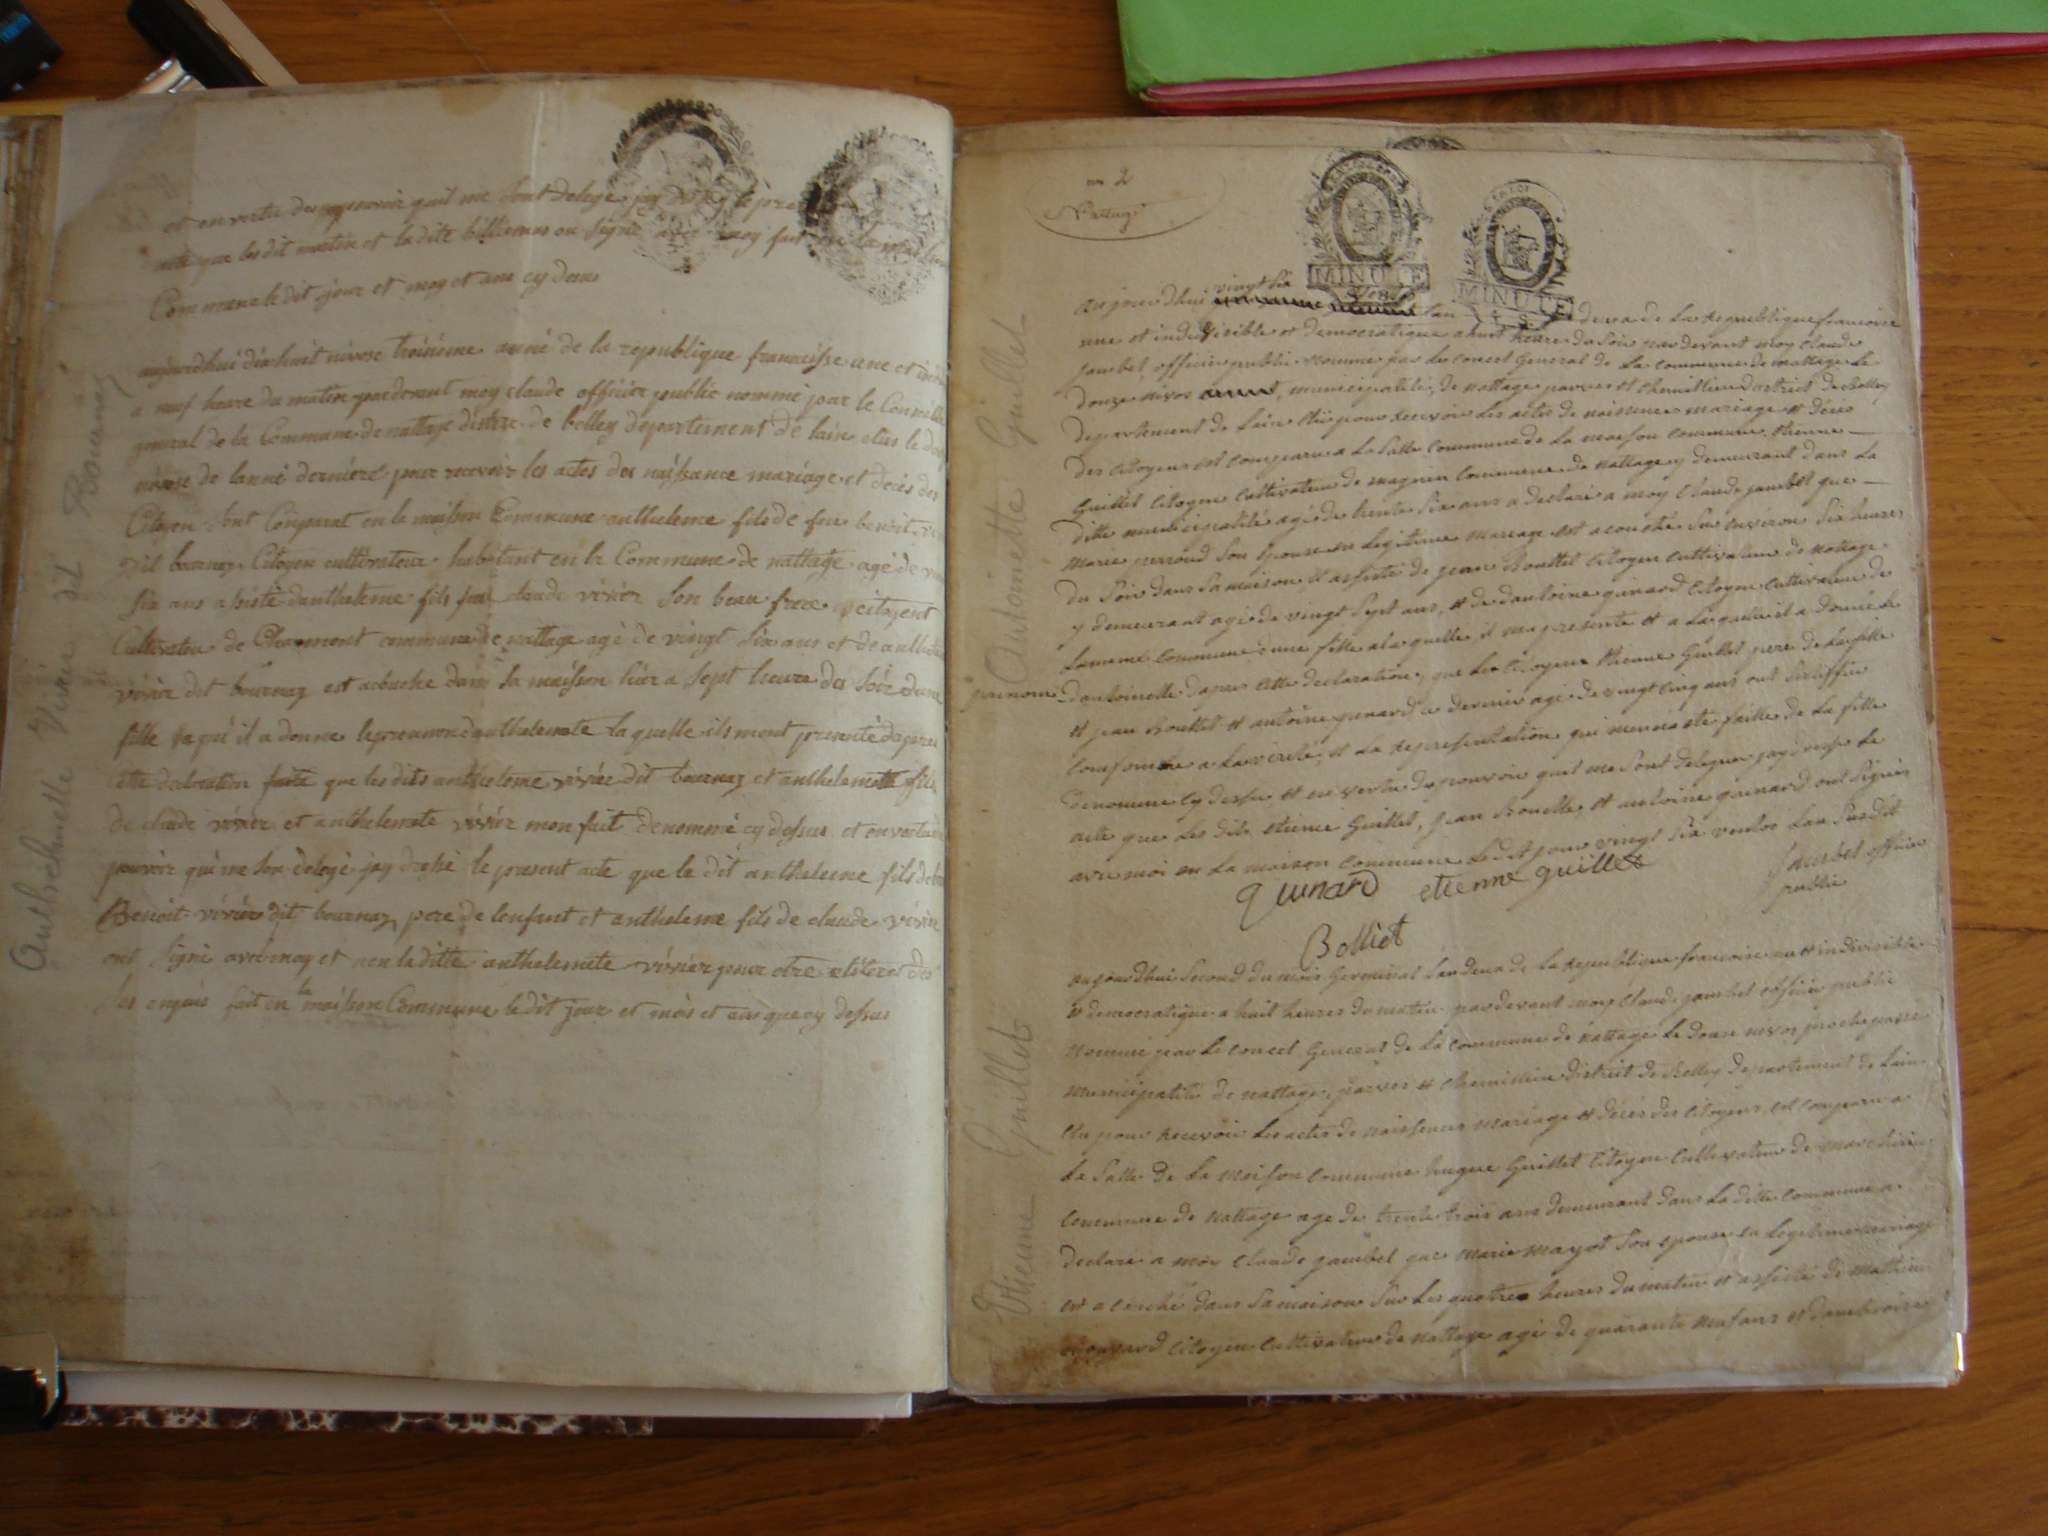 et en vertu du pouvoir quil me sont delegé jay
acte que les dit martin et la dite billiemas on signé moy fait
Commune le dit jour et moy et ans cy desus
Anthelmette Vivier dit Bournaz
aujourdhui dix huit nivose troisieme anné de la republique francaisse une et
a neuf heure du matin pardevant moy claude officier public nommé par le Conseille
general de la Commune de nattage distric de belley departement de lain elus le
nivose de lanné derniere pour recevoir les actes des naissance mariage et décés des
Citoyen sont Comparut en la maison Commune antheleme fils de feu benoit
dit bournaz Citoyen cultivateur habitant en la Commune de nattage agé de
six ans asisté dantheleme fils claude vivier son beau frere citoyent
Cultivateur de commune de nattage agé de vingt six ans et de
vivier dit bournaz est acbuche dans sa maison hier a sept heure du soir dune
fille qui il a donne le prenom danthelemete laquelle ils mont presenté dapres
cette declaration faite que les dits antheleme vivier dit bournaz et anthelemete fille
de claude vivier et anthelemete vivier mon fait denommé cy dessus et en vertu
pouvoir qui me son delegé jay dressé le present acte que le dit antheleme fils de
Benoit vivier dit bournaz pere de lenfant et antheleme fils de claude vivier
ont signé avec moy et non laditte anthelemete vivier pour etre
fait en la maison Commune le dit jour et mois et ans que cy dessus
n 2
Nattage
MINUTE
MINUTE
Antoinette Guillet
aujourdhui vingt six lan deux de la republique francoise
une et indivisible et democratique a huit heure du soir par devant moy Claude
jambet officier public nomme par le conseil general de la commune de nattage le
douze nivos municipalité de nattage parves et chemillieu district de Belley
departement de lain elu pour recevoir les actes de naissance mariage et décés
des citoyens est comparu a la salle commune de la maison commune etienne
Guillet Citoyen Cultivateur de commune de nattage y demeurant dans la
ditte municipalité agé de trente six ans a declaré a moy Claude jambet que
marie perroud son epouse en legitime mariage est acouché sur environ six heures
du soir dans sa maison et assisté de jean Bouttet citoyen cultivateur de nattage
y demeurant agé de vingt sept ans et de dantoine quinard Citoyen Cultivateur de
la meme commune dune fille a laquelle il ma presenté et a laquelle il a donné le
prenom dantoinette dapres cette declaration que le citoyen etienne Guillet pere de la fille
et jean Bouttet et antoine quinard a dernier agé de vingt cinq ans ont
conforme a la verité et la representation qui mennà eté faitte de la fille
denommé cy dessu et en vertu du pouvoir quil me sont delegue jay le
acte que les dits etienne Guillet, jean Bouttet, et antoine quinard ont signés
avec moi en la maison commune ledit jour vingt six ventos lan susdit
quinard etienne guillet jambet officier
public
Bolliet
Etienne Guillet
aujourdhui second du mois Germinal lan deux de la republique francoise une et indivisible
et democratique a huit heures du matin par devant moy Claude jambet officier public
nommé par le conseil general de la commune de nattage le douze nivos proche passé
municipalité de nattage, parves et chemillieu district de Belley departement de lain
elu pour recevoir les actes de naissance mariage et décés des citoyens, est comparu a
la salle de la maison commune hugue Guillet Citoyen Cultivateur de
commune de nattage agé de trente trois ans demeurant dans la ditte commune a
declaré a moy Claude jambet que marie mayot son epouse en legitime mariage
est acouché dans sa maison sur les quatre heures du matin et assisté de
citoyen cultivateur de nattage agé de quarante neuf ans et dambroise